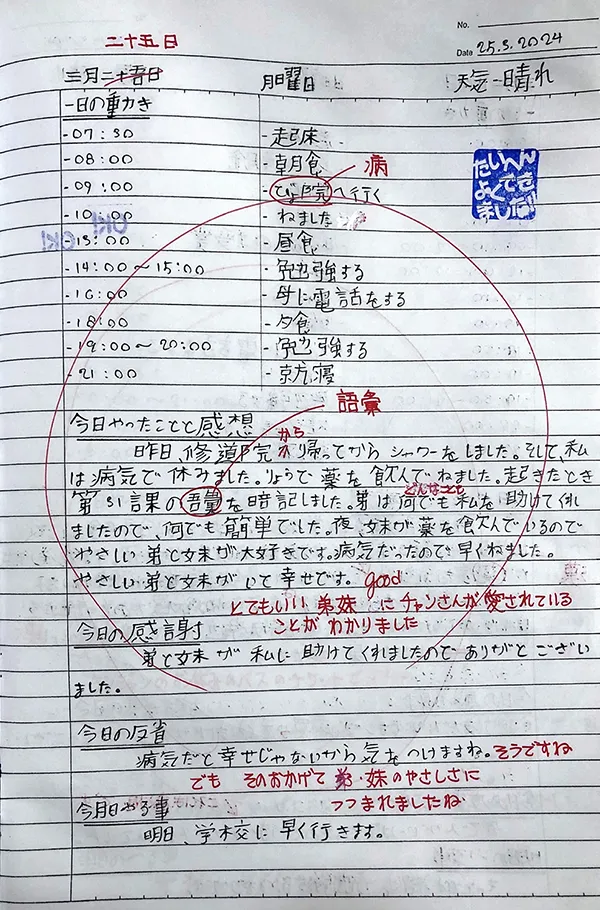 No.
二十五日
Date 25.3.2024
三月二十五日 月曜日 天気-晴れ
一日の動き
-07:30 -起床
-08:00 -朝食 病
-09:00 -びょ院へ行く
たいへん
よくでき
ました
-10:00 -ねました
OK!
OK!
-13:00 -昼食
-14:00~15:00 -勉強する
-16:00 -母に電話をする
-18:00 -夕食
-19:00~20:00 -勉強する
-21:00 -就寝
語彙
今日やったことと感想
から
昨日、修道院 帰ってから シャワーをしました。そして、私
は病気で休みました。りょうで薬を飲んでねました。起きたとき
どんなことも
第31課の語彙を暗記しました。弟は何でも私を助けてくれ
ましたので、何でも簡単でした。夜、妹が薬を飲んでいるので
やさしい弟と妹が大好きです。病気だったので早くねました。
やさしい弟と妹がいて幸せです。 good
とてもいい 弟妹 にチャンさんが愛されている
今日の感謝 ことがわかりました
弟と妹が私に助けてくれましたのでありがとうござい
ました。
今日の反省
病気だと幸せじゃないから気をつけますね。そうですね
でも そのおかげで 弟・妹のやさしさに
今月日やる事 つつまれましたね
明日、学校に早く行きます。